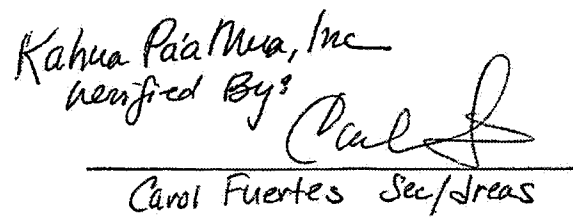 Kahua Pa'a Mua, Inc
Verified By:
Carol Fuertes Sec/Treas